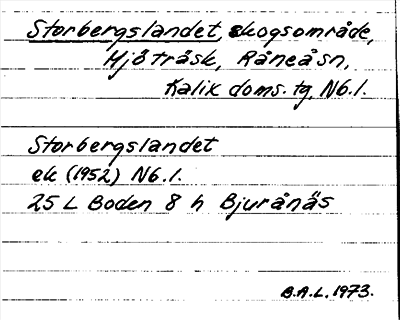 Storbergslandet, skogsområde,
Mjöträsk, Råneå sn,
Kalix doms. tg, Nb.l.
Storbergslandet
ek (1952) Nb.l.
25 L Boden 8 h Bjurånäs
B.A.L. 1973.